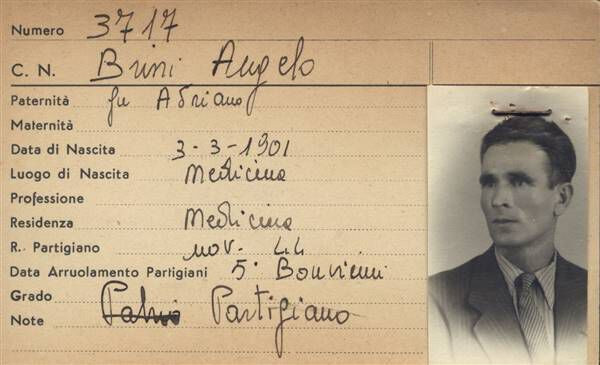 Numero 3717
C. N. Brini Angelo
Paternità fu Adriano
Maternità
Data di Nascita 3-3-1901
Luogo di Nascita Medicina
Professione
Residenza Medicina
R. Partigiano nov. 44
Data Arruolamento Partigiani 5° Bonvicini
Grado
Note Partigiano